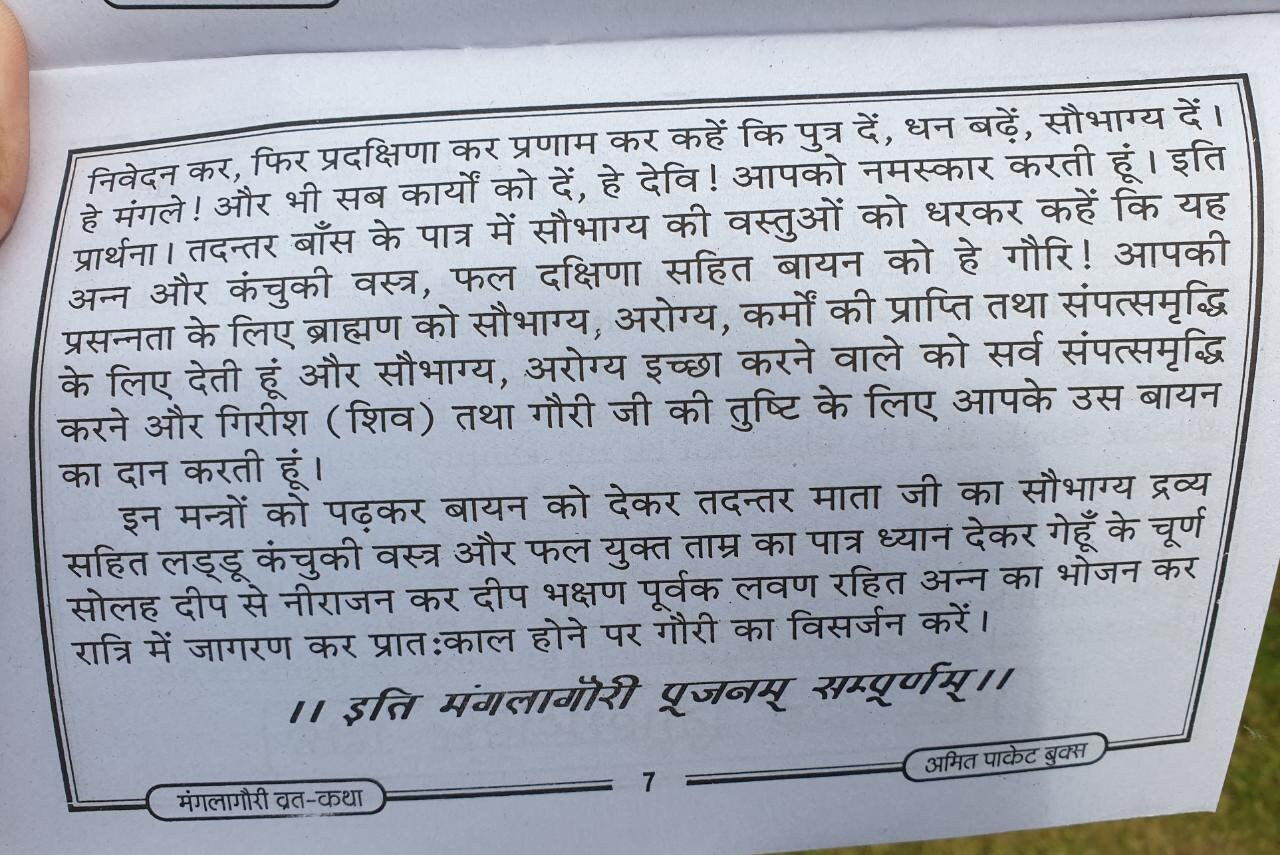 निवेदन कर, फिर प्रदक्षिणा कर प्रणाम कर कहें कि पुत्र दें, धन बढ़ें, सौभाग्य दें।
हे मंगले! और भी सब कार्यों को दें, हे देवि! आपको नमस्कार करती हूं। इति
प्रार्थना। तदन्तर बाँस के पात्र में सौभाग्य की वस्तुओं को धरकर कहें कि यह
अन्न और कंचुकी वस्त्र, फल दक्षिणा सहित बायन को हे गौरि! आपकी
प्रसन्नता के लिए ब्राह्मण को सौभाग्य, अरोग्य, कर्मों की प्राप्ति तथा संपत्समृद्धि
के लिए देती हूं और सौभाग्य, अरोग्य इच्छा करने वाले को सर्व संपत्समृद्धि
करने और गिरीश (शिव) तथा गौरी जी की तुष्टि के लिए आपके उस बायन
का दान करती हूं।
इन मन्त्रों को पढ़कर बायन को देकर तदन्तर माता जी का सौभाग्य द्रव्य
सहित लड्डू कंचुकी वस्त्र और फल युक्त ताम्र का पात्र ध्यान देकर गेहूँ के चूर्ण
सोलह दीप से नीराजन कर दीप भक्षण पूर्वक लवण रहित अन्न का भोजन कर
रात्रि में जागरण कर प्रात:काल होने पर गौरी का विसर्जन करें।
।। इति मंगलागौरी पूजनम् सम्पूर्णम्।।
मंगलागौरी व्रत-कथा 7 अमित पाकेट बुक्स